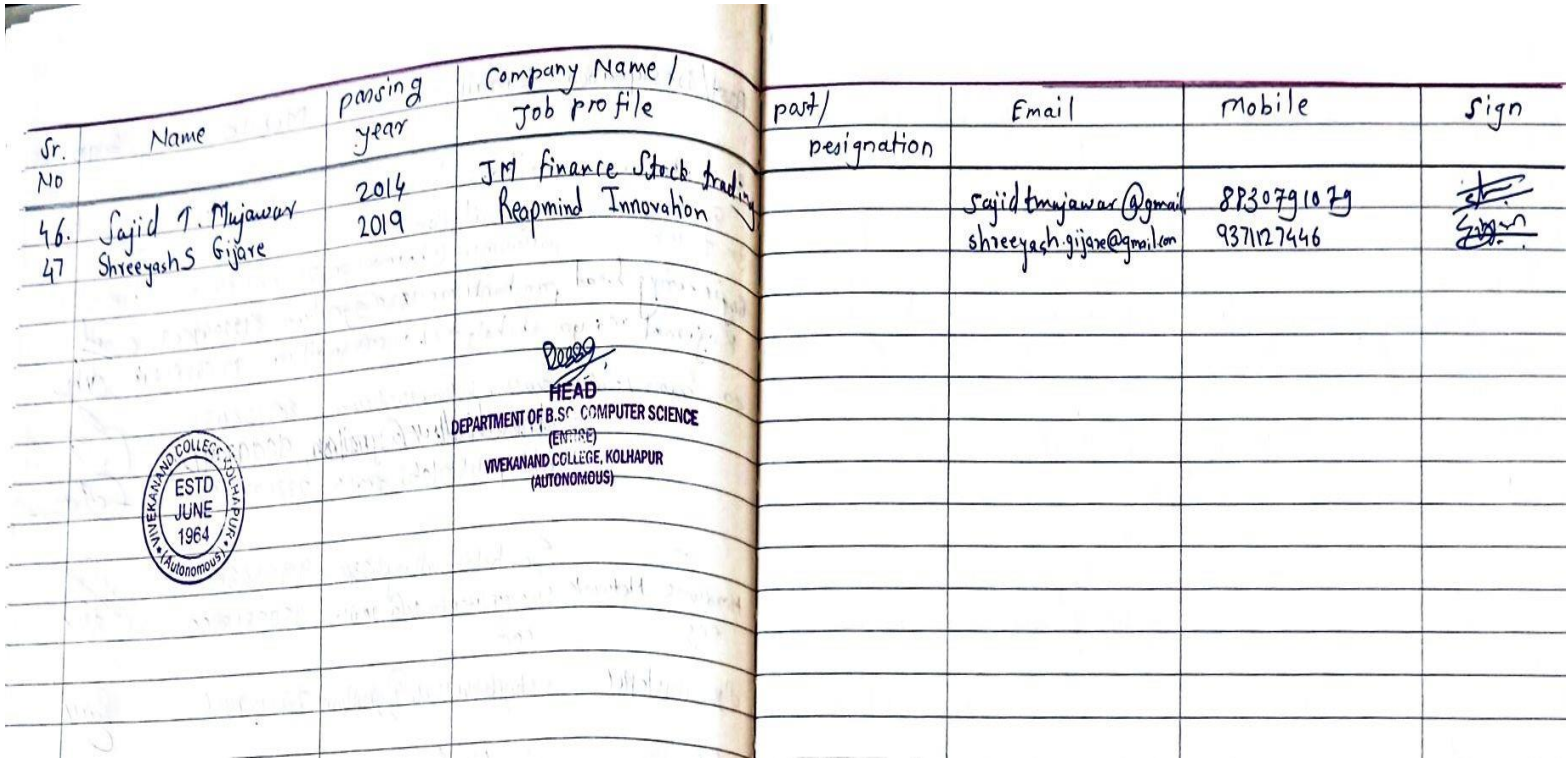 Sr. No | Name | passing year | Company Name / Job profile | post/ Designation | Email | Mobile | Sign
46. Sajid T. Mujawar 2014 JM finance Stock trading sajidtmujawar@gmail 8830791079
47 Shreeyash S Gijare 2019 Reapmind Innovation shreeyash.gijare@gmail.com 9371127446
HEAD
DEPARTMENT OF B.SC COMPUTER SCIENCE
(ENTIRE)
VIVEKANAND COLLEGE, KOLHAPUR
(AUTONOMOUS)
VIVEKANAND COLLEGE, KOLHAPUR
(Autonomous)
ESTD
JUNE
1964